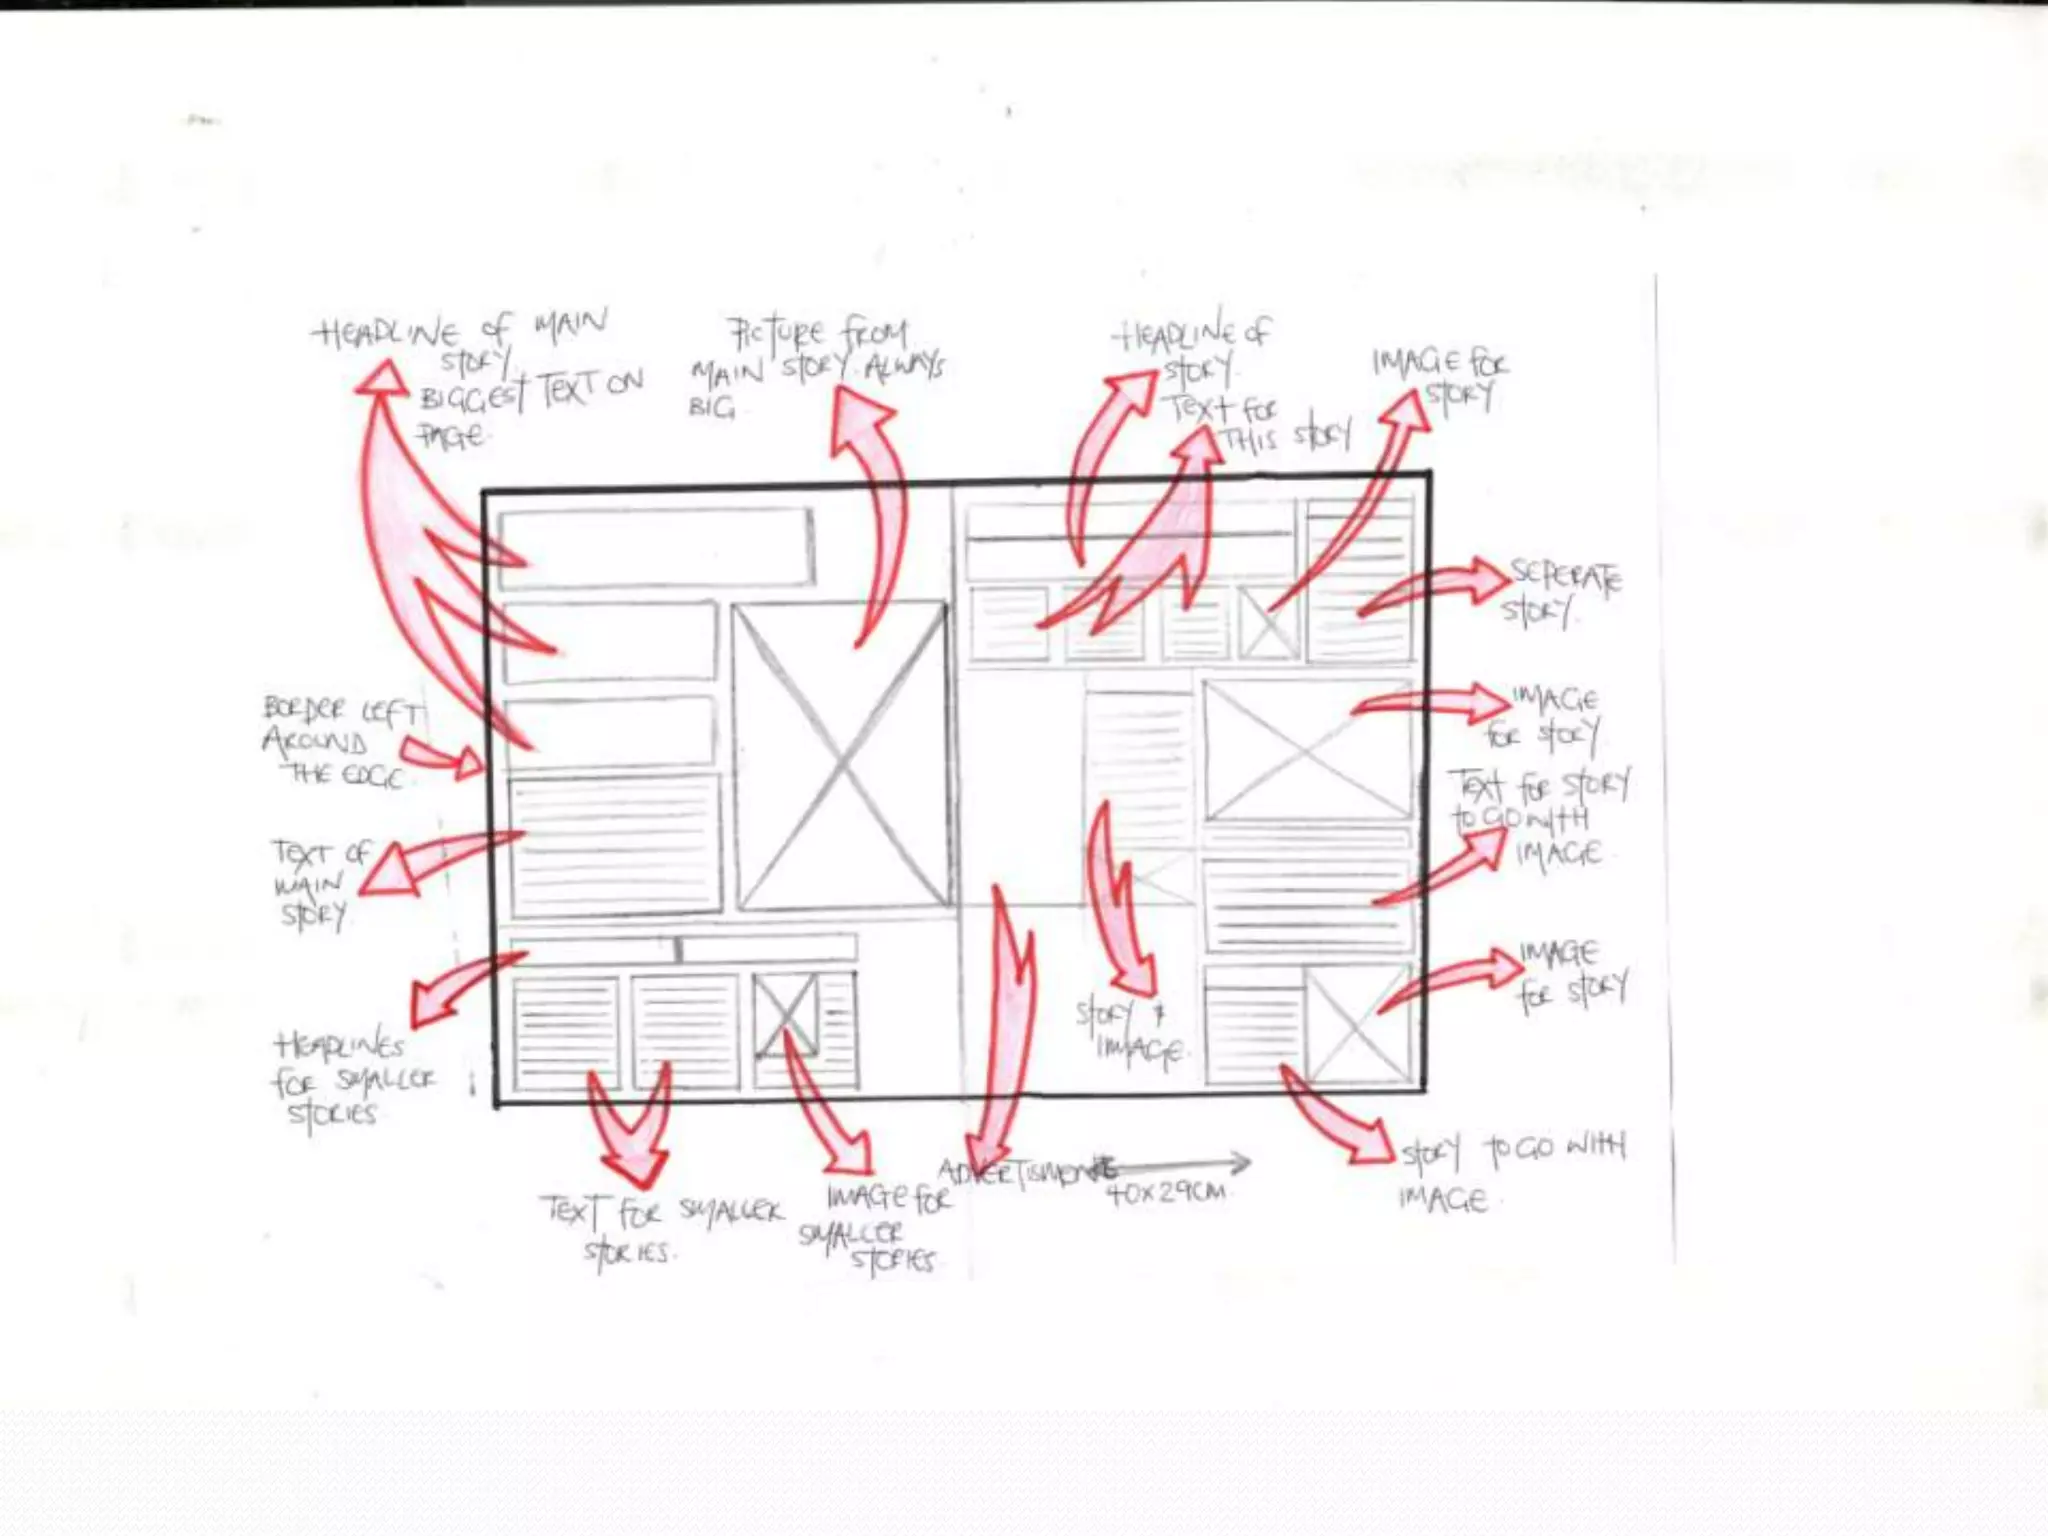 HEADLINE OF MAIN
STORY.
BIGGEST TEXT ON
PAGE.
PICTURE FROM
MAIN STORY. ALWAYS
BIG.
HEADLINE OF
STORY.
TEXT FOR
THIS STORY
IMAGE FOR
STORY.
SEPERATE
STORY.
IMAGE
FOR STORY.
TEXT FOR STORY
TO GO WITH
IMAGE.
IMAGE
FOR STORY
STORY TO GO WITH
IMAGE.
BORDER LEFT
AROUND
THE EDGE.
TEXT OF
MAIN
STORY.
HEADLINES
FOR SMALLER
STORIES.
TEXT FOR SMALLER
STORIES.
IMAGE FOR
SMALLER
STORIES.
STORY &
IMAGE.
40x29CM.